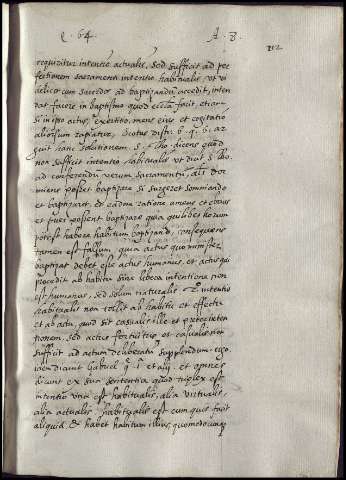 q. 64. A. 8.
212
requiritur intentio actualis, sed sufficit ad per
fectionem sacramenti intentio habitualis, ut vi
delicet cum sacerdos ad baptizandum accedit, inten
dat facere in baptismo quod ecclesia facit, etiam
si in ipso actus exercitio mens eius et cogitatio
aliorsum rapiatur. Scotus dist. 6. q. 6. ar
guit hanc solutionem s. Tho. dicens quod
non sufficit intentio habitualis ut dicit s. Tho.
ad conferendum verum sacramentum, alias dor
miens posset baptizare si surgeret somniando
et baptizaret, et eadem ratione amens et ebrius
et puer possent baptizare quia quilibet horum
potest habere habitum baptizandi, consequens
tamen est falsum, quia actus quo minister
baptizat debet esse actus humanus, et actus qui
procedit ab habitu sine libera intentione non
est humanus, sed solum naturalis. Et intentio
habitualis non tollit ab habitu et effectu
et ab actu, quod sit casualis ille et preter inten
tionem, sed actus fortuitus et casualis non
sufficit ad actum deliberatum supplendum. ergo.
idem dicunt Gabriel q. 1. et alij. et omnes
dicunt ex sua sententia quod triplex est
intentio una est habitualis, alia virtualis,
alia actualis, habitualis est cum quis facit
aliquid, et habet habitum illius, quomodocumque